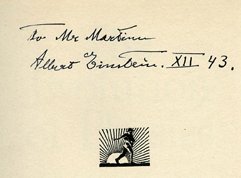 To Mr Martinu
Albert Einstein. XII 43.